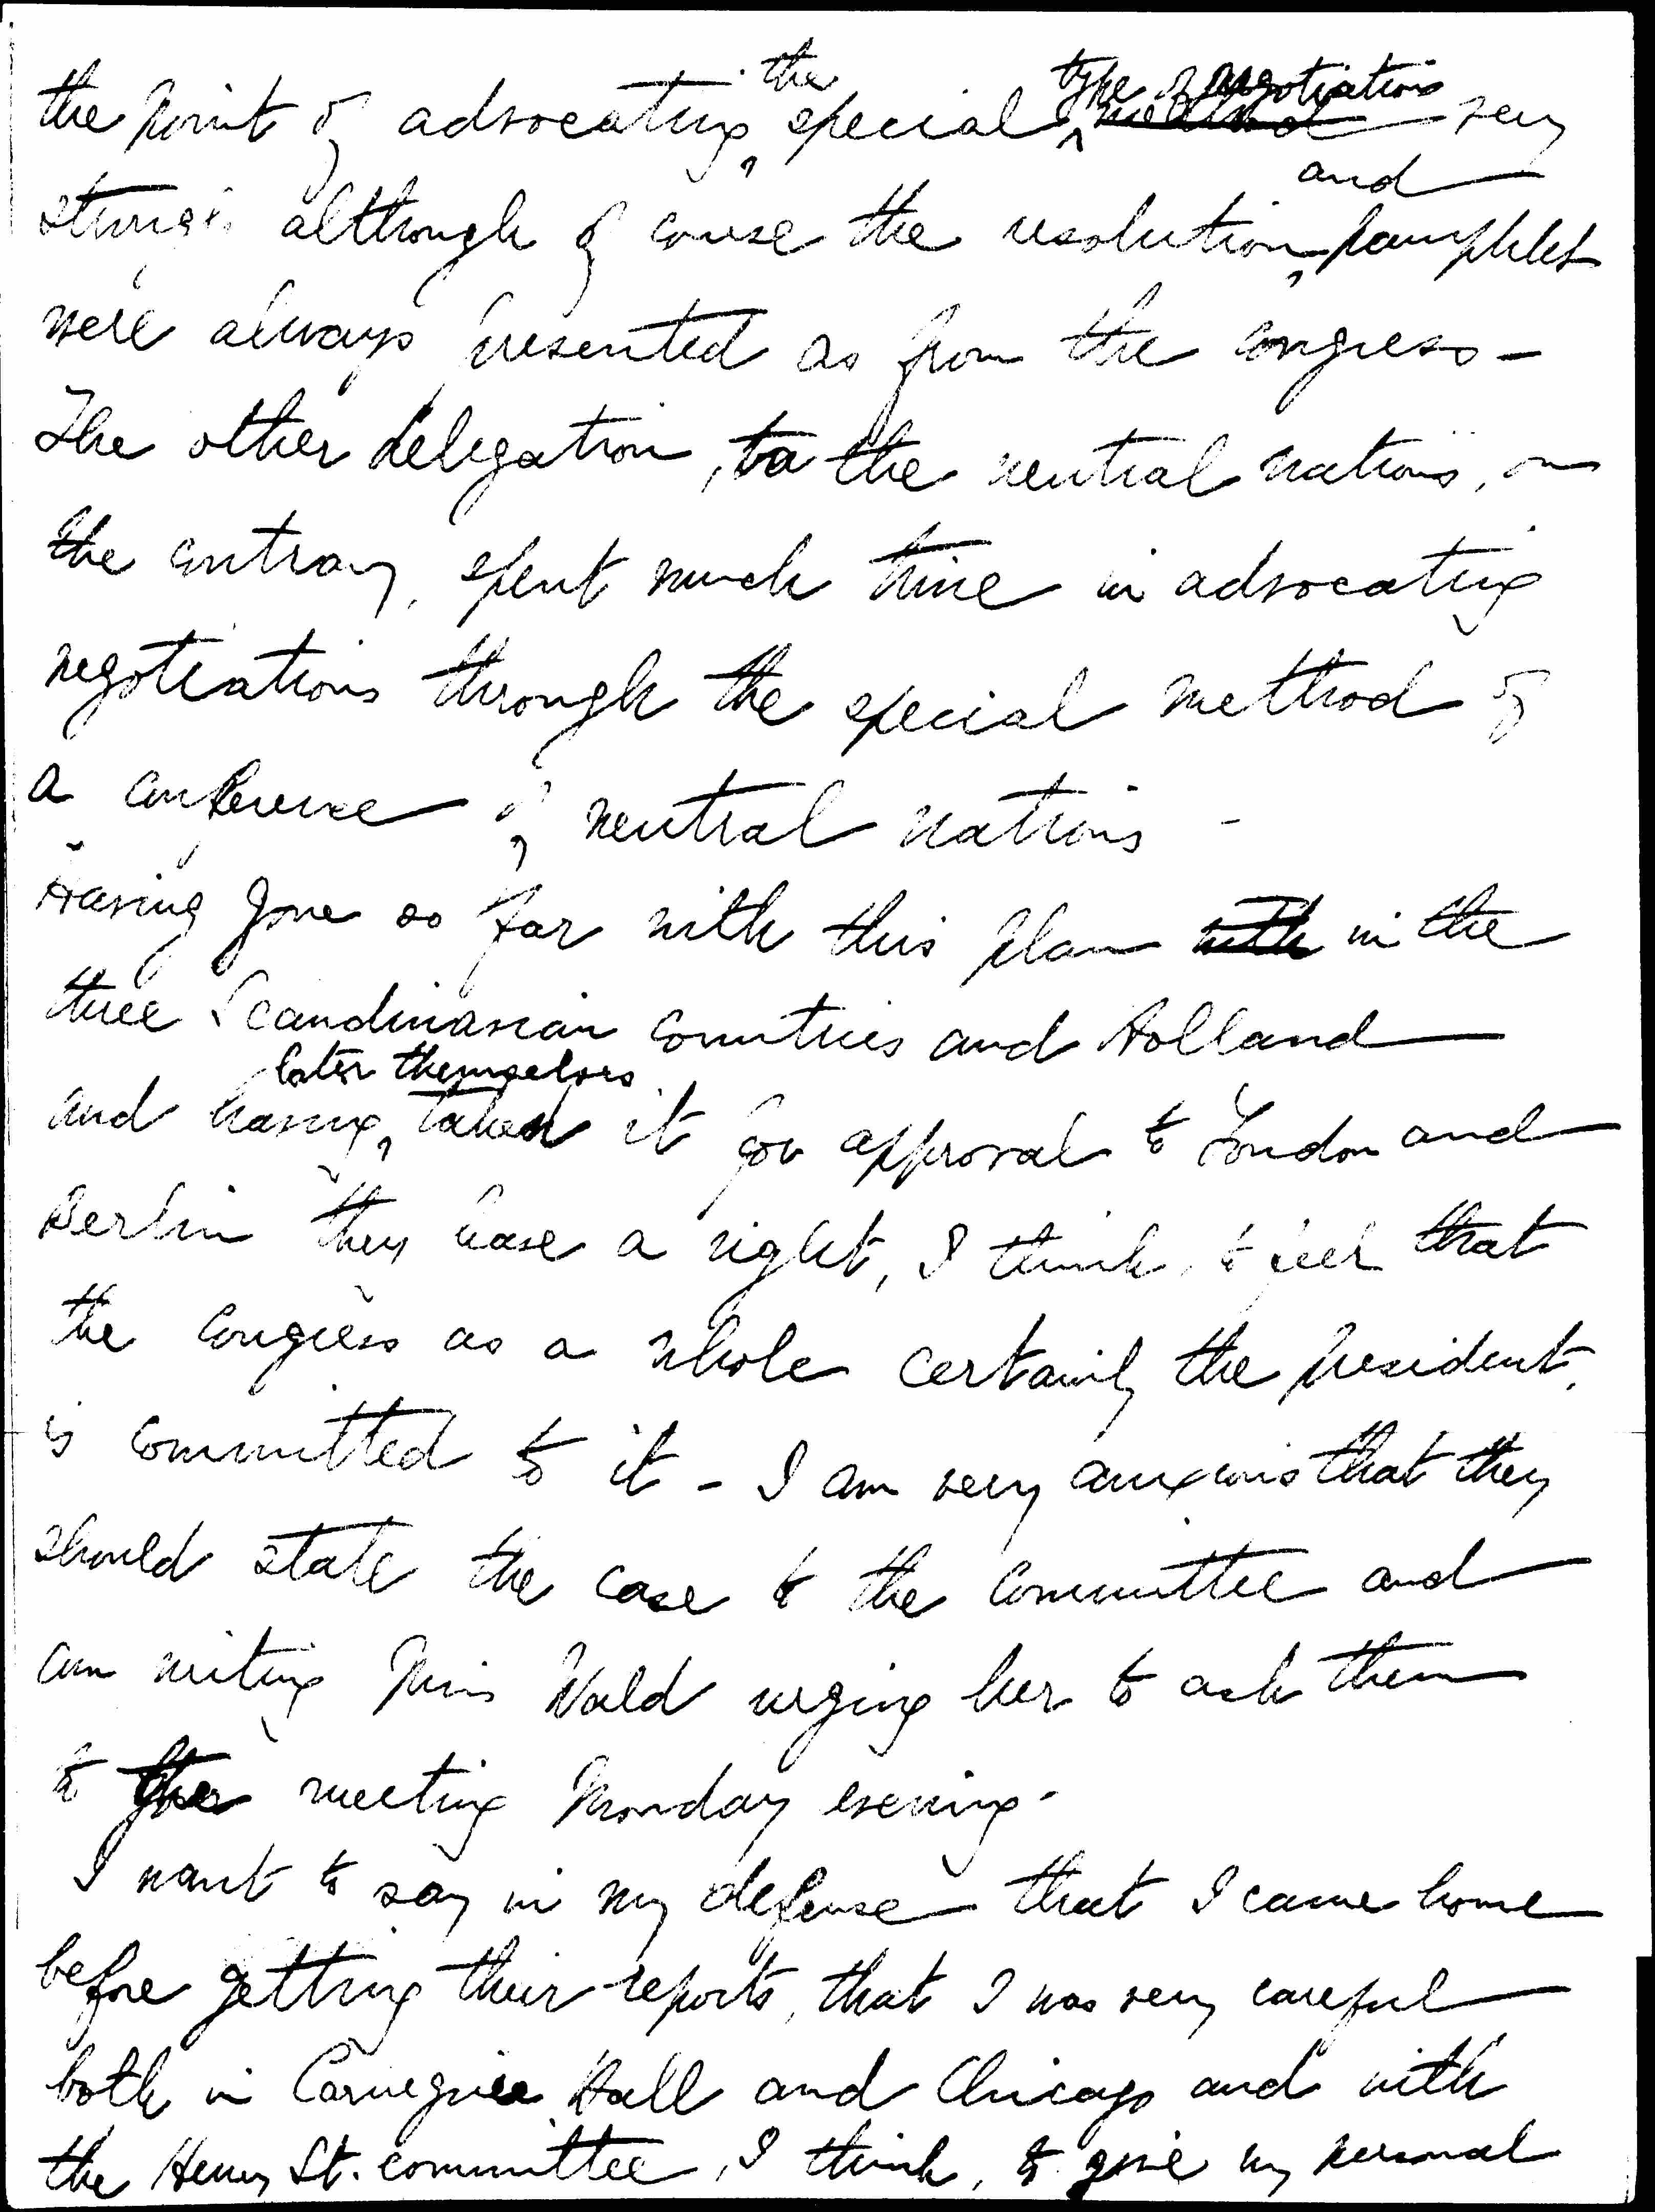 the point of advocating the special type of negotiation very
strongly although of course the resolution and pamphlet
were always presented as from the congress –
The other delegation, to the neutral nations, on
the contrary, spent much time in advocating
negotiations through the special method of
a conference of neutral nations –
Having gone so far with this plan with in the
three Scandinavian countries and Holland
and having later themselves taken it for approval to London and
Berlin they have a right, I think, to feel that
the congress as a whole certainly the president,
is committed to it – I am very anxious that they
should state the case to the committee and
am writing Miss Wald urging her to ask them
to the meeting Monday evening –
I want to say in my defense that I came home
before getting their reports, that I was very careful
both in Carnegie Hall and Chicago and with
the Henry St. committee, I think, to give my personal